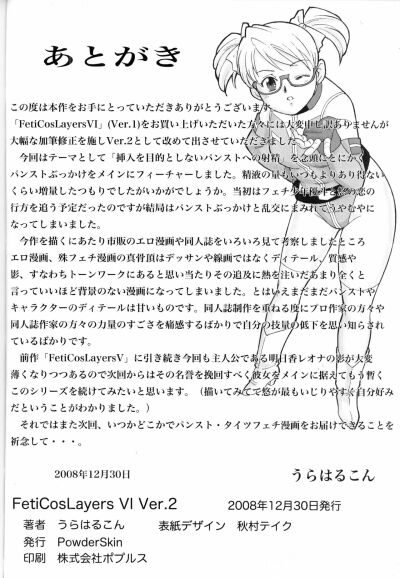 あとがき
この度は本作をお手にとっていただきありがとうございます。
「FetiCosLayersVI」(Ver.1)をお買い上げいただいた方々には大変申し訳ありませんが
大幅な加筆修正を施しVer.2として改めて出させていただきました。
今回はテーマとして「挿入を目的としないパンストへの射精」を念頭にとにかく
パンストぶっかけをメインにフィーチャーしました。精液の量もいつもよりあり得ない
くらい増量したつもりでしたがいかがでしょうか。当初はフェチ少年の恋の
行方を追う予定だったのですが結局はパンストぶっかけと乱交にまみれてうやむやに
なってしまいました。
今作を描くにあたり市販のエロ漫画や同人誌をいろいろ見て考察しましたところ
エロ漫画、殊フェチ漫画の真骨頂はデッサンや線画ではなくディテール、質感や
影、すなわちトーンワークにあると思い当たりその追及に熱を注いだあまり全くと
言っていいほど背景のない漫画になってしまいました。とはいえまだまだパンストや
キャラクターのディテールは甘いものです。同人誌制作を重ねる度にプロ作家の方々や
同人作家の方々の力量のすごさを痛感するばかりで自分の技量の低下を思い知らされ
ているばかりです。
前作「FetiCosLayersV」に引き続き今回も主人公である明日香レオナの影が大変
薄くなりつつあるので次回からはその名誉を挽回すべく彼女をメインに据えてもう暫く
このシリーズを続けてみたいと思います。（描いてみてて悠が最もいじりやすく自分好み
だということがわかりました。）
それではまた次回、いつかどこかでパンスト・タイツフェチ漫画をお届けできることを
祈念して・・・。
2008年12月30日 うらはるこん
FetiCosLayers VI Ver.2 2008年12月30日発行
著者 うらはるこん 表紙デザイン 秋村テイク
発行 PowderSkin
印刷 株式会社ポプルス